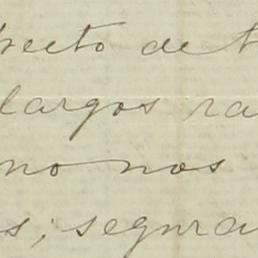 pecto de
largos ra
no nos
s; segura